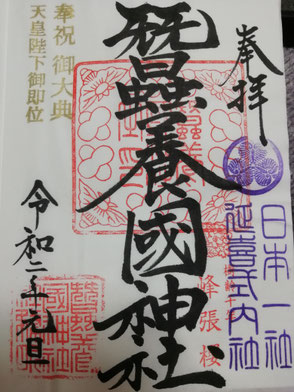 奉拝
日本一社
延喜式内社
峰張桜
蠶養國神社
奉祝 御大典
天皇陛下御即位
令和二年元旦